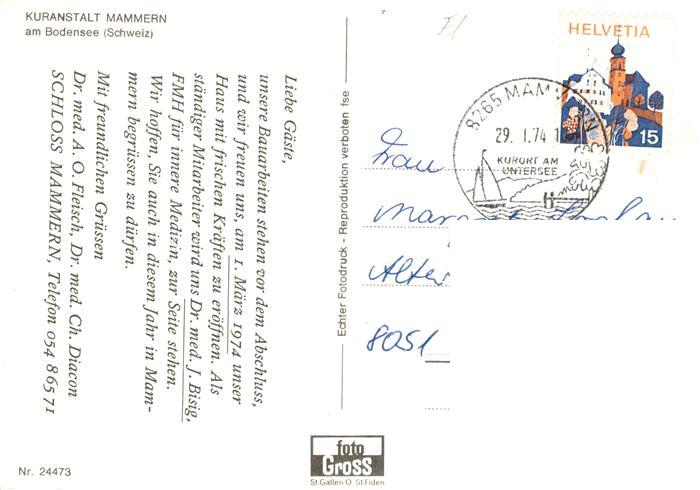 KURANSTALT MAMMERN
am Bodensee (Schweiz)
Liebe Gäste,
unsere Bauarbeiten stehen vor dem Abschluss,
und wir freuen uns, am 1. März 1974 unser
Haus mit frischen Kräften zu eröffnen. Als
ständiger Mitarbeiter wird uns Dr. med. J. Bisig,
FMH für innere Medizin, zur Seite stehen.
Wir hoffen, Sie auch in diesem Jahr in Mam-
mern begrüssen zu dürfen.
Mit freundlichen Grüssen
Dr. med. A. O. Fleisch, Dr. med. Ch. Diacon
SCHLOSS MAMMERN, Telefon 054 86571
Nr. 24473
Echter Fotodruck - Reproduktion verboten fse
foto
Gross
St.Gallen O St.Fiden
HELVETIA
15
8265 MAM
29. 1.74
KURORT AM
UNTERSEE
Frau
Alter
8051